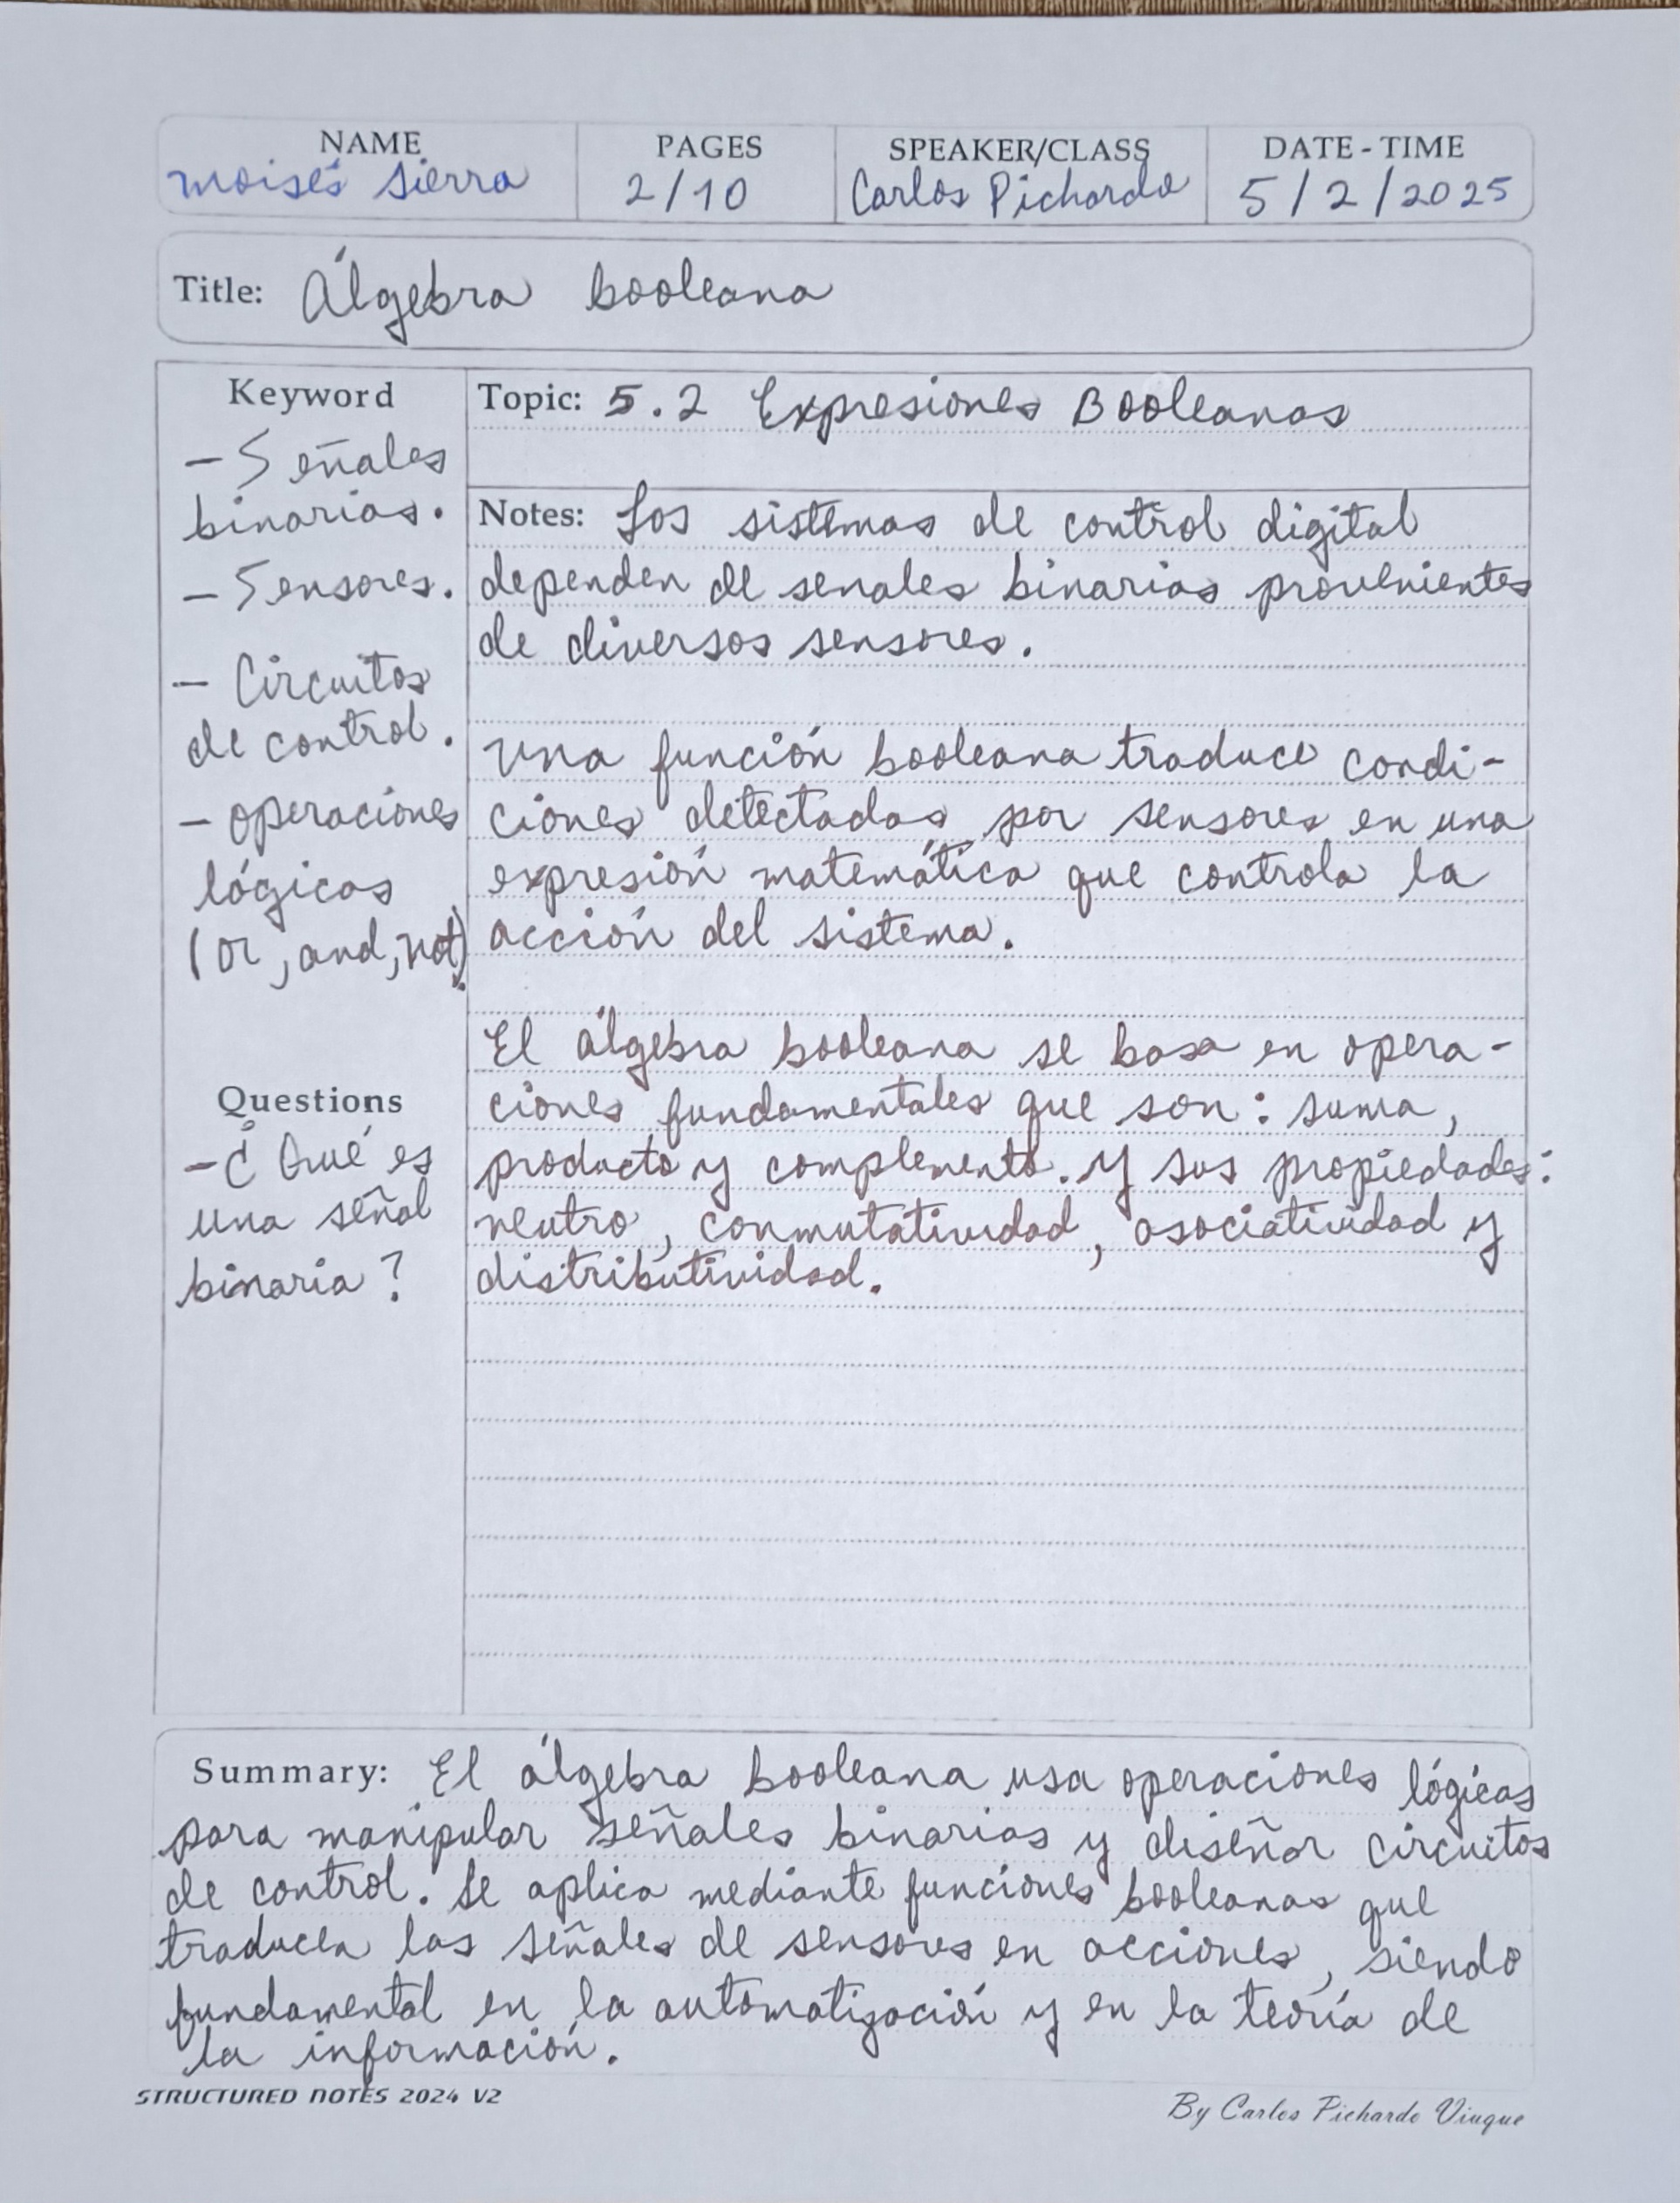 NAME
moisés sierra
PAGES
2/10
SPEAKER/CLASS
Carlos Pichardo
DATE - TIME
5/2/2025
Title: Álgebra booleana
Keyword
- Señales
binarias.
- Sensores.
- Circuitos
de control.
- operaciones
lógicas
(or, and, not).
Questions
- ¿Qué es
una señal
binaria?
Topic: 5.2 Expresiones Booleanas
Notes: Los sistemas de control digital
dependen de senales binarias provenientes
de diversos sensores.
Una función booleana traduce condi-
ciones detectadas por sensores en una
expresión matemática que controla la
acción del sistema.
El álgebra booleana se basa en opera-
ciones fundamentales que son: suma,
producto y complemento. y sus propiedades:
neutro, conmutatividad, asociatividad y
distributividad.
Summary: El álgebra booleana usa operaciones lógicas
para manipular señales binarias y diseñar circuitos
de control. Se aplica mediante funciones booleanas que
traducen las señales de sensores en acciones, siendo
fundamental en la automatización y en la teoría de
la información.
STRUCTURED NOTES 2024 V2
By Carlos Pichardo Viuque